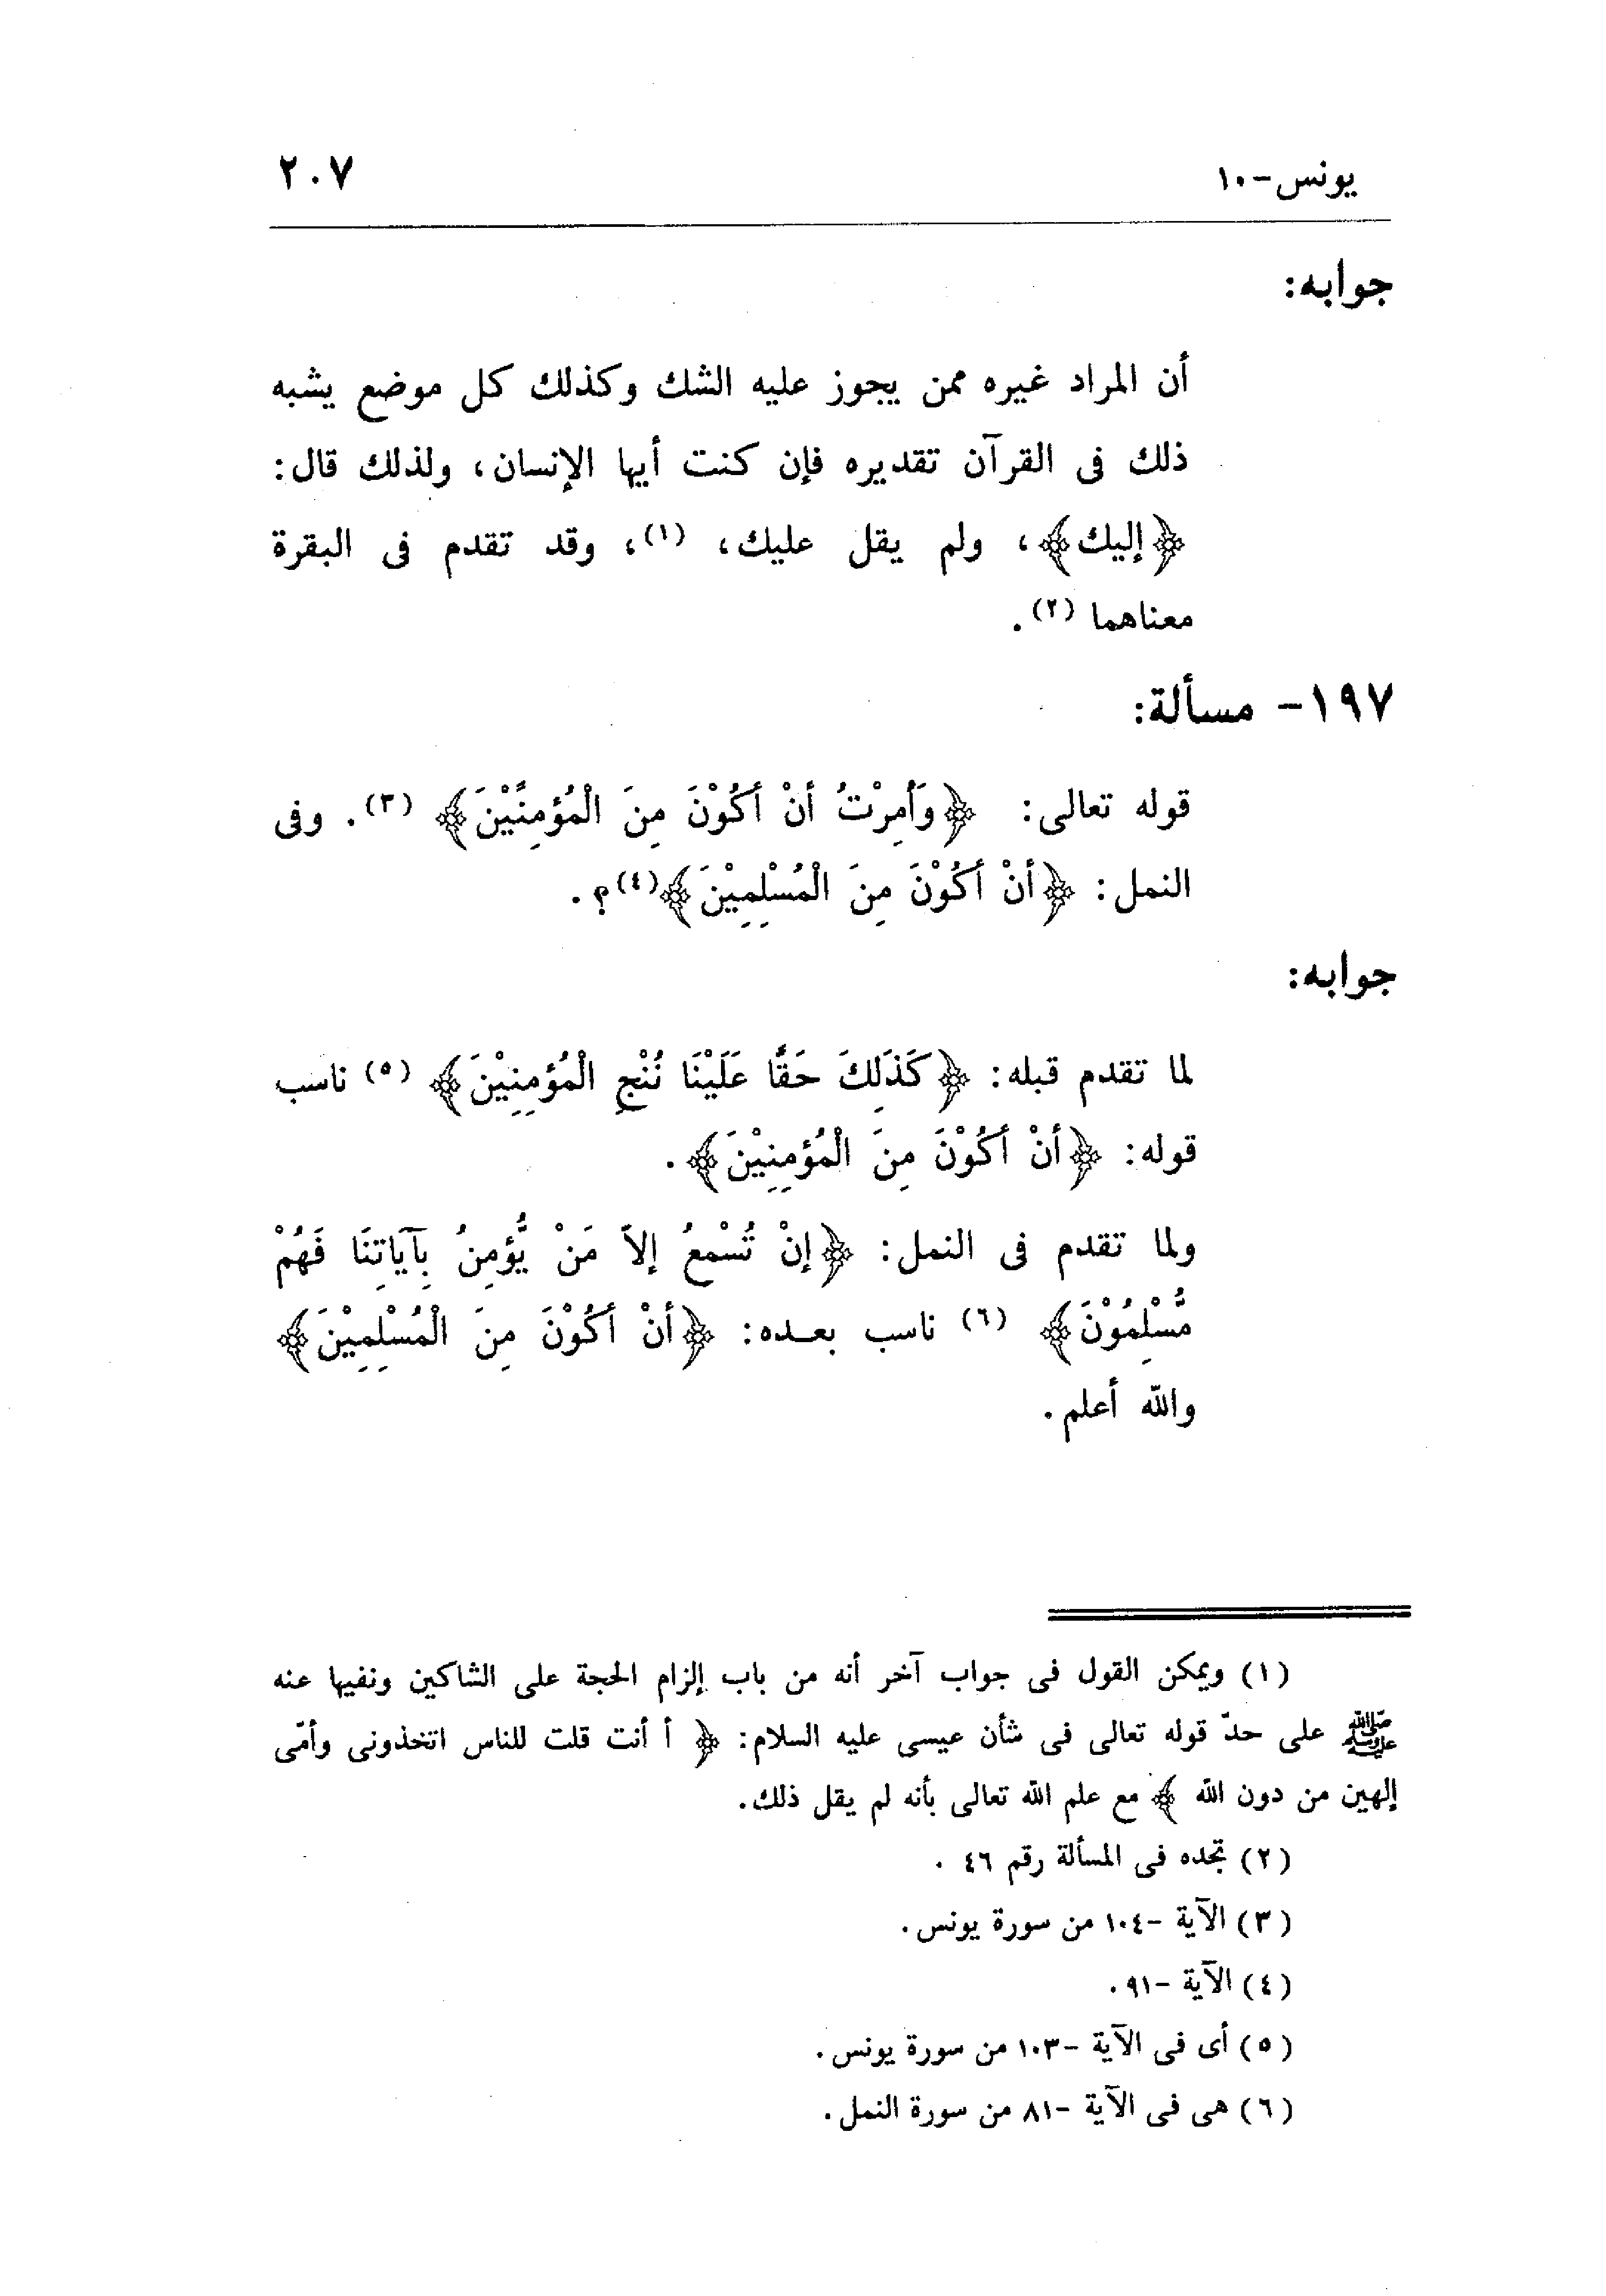 يونس-١٠ ٢٠٧
جوابه:
أن المراد غيره ممن يجوز عليه الشك وكذلك كل موضع يشبه
ذلك فى القرآن تقديره فإن كنت أيها الإنسان، ولذلك قال:
﴿إليك﴾، ولم يقل عليك، (١)، وقد تقدم فى البقرة
معناهما (٢).
١٩٧- مسألة:
قوله تعالى: ﴿وَأُمِرْتُ أنْ أكُوْنَ مِنَ الْمُؤمِنِّيْنَ﴾ (٣). وفى
النمل: ﴿أنْ أكُوْنَ مِنَ الْمُسْلِمِيْنَ﴾(٤)؟.
جوابه:
لما تقدم قبله: ﴿كَذَلِكَ حَقًّا عَلَيْنَا نُنْجِ الْمُؤمِنِيْنَ﴾ (٥) ناسب
قوله: ﴿أنْ أكُوْنَ مِنَ الْمُؤمِنِيْنَ﴾.
ولما تقدم فى النمل: ﴿إنْ تُسْمعُ إلاَّ مَنْ يُّؤمِنُ بِآيَاتِنَا فَهُمْ
مُّسْلِمُوْنَ﴾ (٦) ناسب بعده: ﴿أنْ أكُوْنَ مِنَ الْمُسْلِمِيْنَ﴾
والله أعلم.
(١) ويمكن القول فى جواب آخر أنه من باب إلزام الحجة على الشاكين ونفيها عنه
ﷺ على حدّ قوله تعالى فى شأن عيسى عليه السلام: ﴿ أ أنت قلت للناس اتخذونى وأمّى
إلهين من دون الله ﴾ مع علم الله تعالى بأنه لم يقل ذلك.
(٢) تجده فى المسألة رقم ٤٦ .
(٣) الآية -١٠٤ من سورة يونس.
(٤) الآية -٩١.
(٥) أى فى الآية -١٠٣ من سورة يونس.
(٦) هى فى الآية -٨١ من سورة النمل.